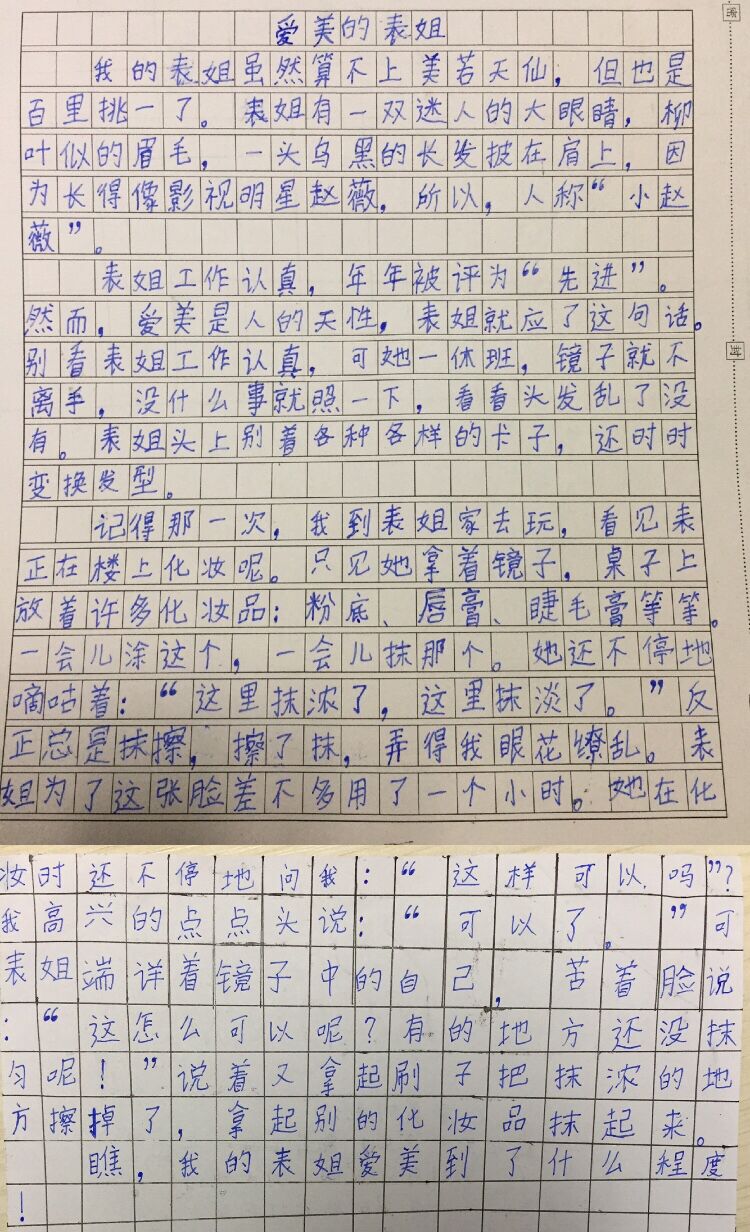 爱美的表姐
我的表姐虽然算不上美若天仙，但也是
百里挑一了。表姐有一双迷人的大眼睛，柳
叶似的眉毛，一头乌黑的长发披在肩上，因
为长得像影视明星赵薇，所以，人称“小赵
薇”。
表姐工作认真，年年被评为“先进”。
然而，爱美是人的天性，表姐就应了这句话。
别看表姐工作认真，可她一休班，镜子就不
离手，没什么事就照一下，看看头发乱了没
有。表姐头上别着各种各样的卡子，还时时
变换发型。
记得那一次，我到表姐家去玩，看见表
正在楼上化妆呢。只见她拿着镜子，桌子上
放着许多化妆品：粉底、唇膏、睫毛膏等等。
一会儿涂这个，一会儿抹那个。她还不停地
嘀咕着：“这里抹浓了，这里抹淡了。”反
正总是抹擦，擦了抹，弄得我眼花缭乱。表
姐为了这张脸差不多用了一个小时。她在化
妆时还不停地问我：“这样可以吗”？
我高兴的点点头说：“可以了。”可
表姐端详着镜子中的自己，苦着脸说
：“这怎么可以呢？有的地方还没抹
匀呢！”说着又拿起刷子把抹浓的地
方擦掉了，拿起别的化妆品抹起来。
瞧，我的表姐爱美到了什么程度
！